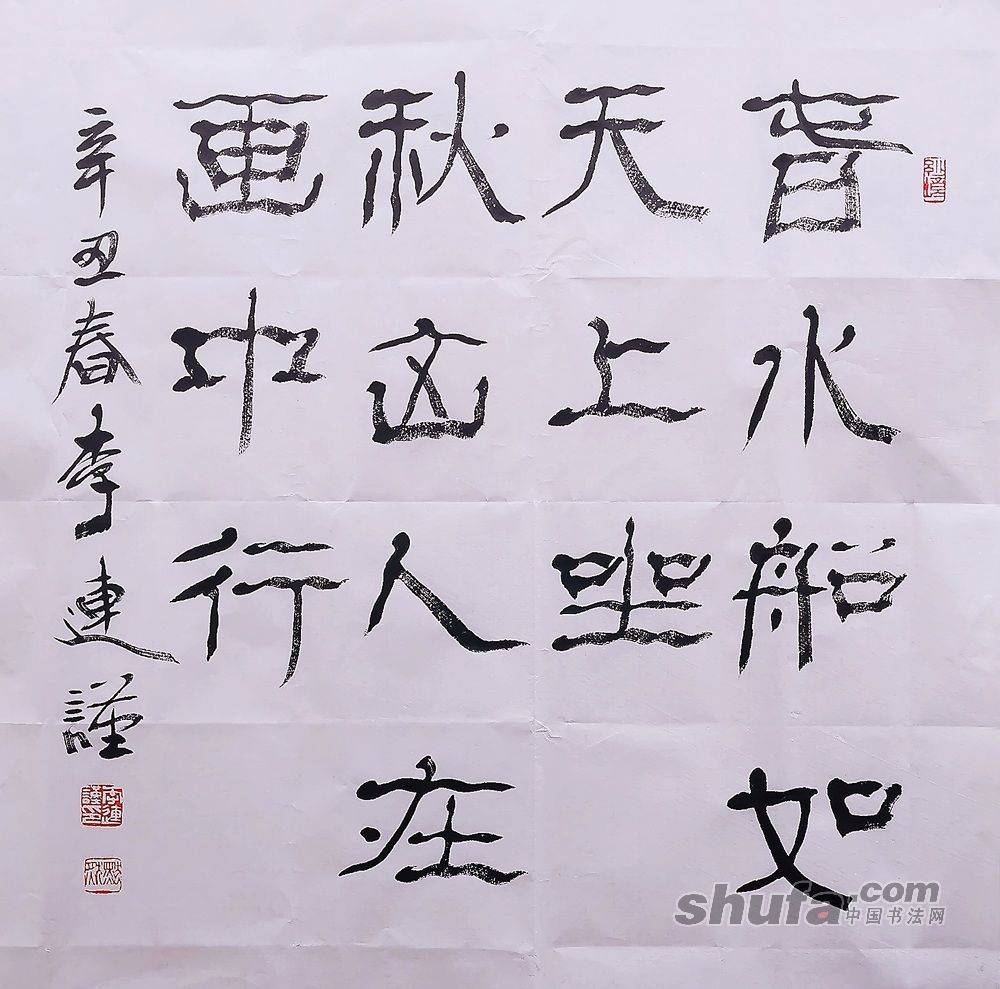 春水船如
天上坐
秋山人在
画中行
辛丑春李連謹
李連謹印
shufa.com
中国书法网